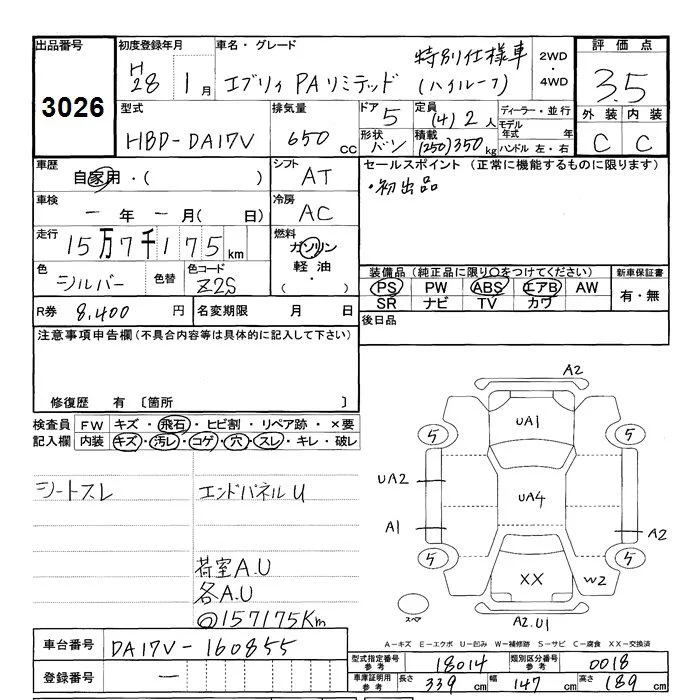 出品番号 初度登録年月 車名・グレード 評価点
3026 H28 1月 エブリィ PAリミテッド 特別仕様車 (ハイルーフ) 2WD・4WD 3.5
型式 排気量 ドア 定員 ディーラー・並行 外装 内装
HBD-DA17V 650cc 5 (4)2人 モデル年式 年 C C
形状 バン 積載 (250)350kg ハンドル 左・右
車歴 シフト セールスポイント (正常に機能するものに限ります)
自家用・( ) AT ・初出品
車検 冷房
一年 一月( 日) AC
走行 燃料
15万7千175km ガソリン 軽油・( )
色 色替 色コード 装備品 (純正品に限り○をつけてください) 新車保証書
シルバー Z2S PS PW ABS エアB AW 有・無
SR ナビ TV カワ
R券 8,400円 名変期限 月 日 後日品
注意事項申告欄(不具合内容等は具体的に記入して下さい)
修復歴 有 〔箇所 〕
検査員 FW キズ・飛石・ヒビ割・リペア跡・×要
記入欄 内装 キズ・汚レ・コゲ・穴・スレ・キレ・破レ
シートスレ エンドパネルU
荷室A.U
各A.U
@157175Km
A2
UA1
5 5
UA2 UA4
A1 A2
5 5
XX W2
スペア A2.U1
A-キズ E-エクボ U-凹み W-補修跡 S-サビ C-腐食 XX-交換済
車台番号 DA17V-160855 型式指定番号 参考 18014 類別区分番号 参考 0018
登録番号 一 車庫証明用 参考 長さ 339cm 幅 147cm 高さ 189cm